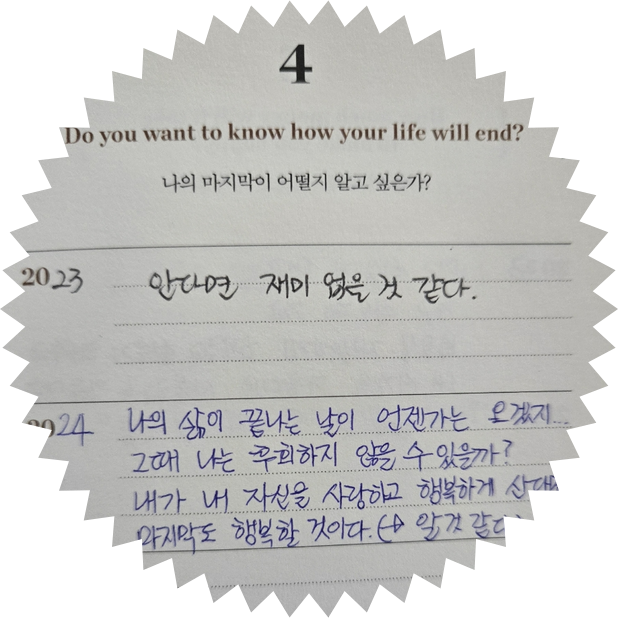 4
Do you want to know how your life will end?
나의 마지막이 어떨지 알고 싶은가?
2023 안다면 재미 없을 것 같다.
2024 나의 삶이 끝나는 날이 언젠가는 오겠지...
그때 나는 후회하지 않을 수 있을까?
내가 내 자신을 사랑하고 행복하게 산다면
마지막도 행복할 것이다. (→ 알 것 같다